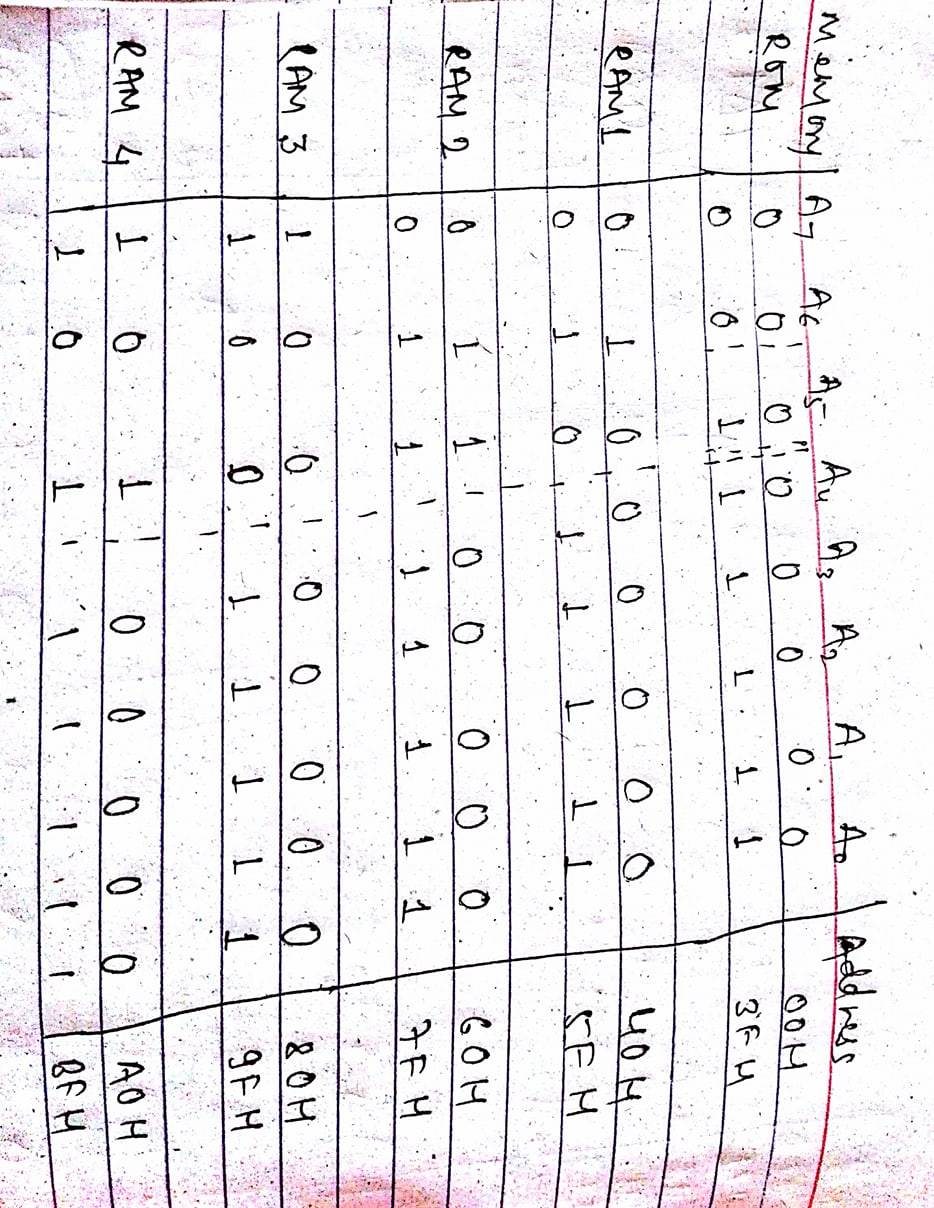 Memory A7 A6 A5 A4 A3 A2 A1 A0 Address
ROM 0 0 0 0 0 0 0 0 00H
0 0 1 1 1 1 1 1 3FH
RAM1 0 1 0 0 0 0 0 0 40H
0 1 0 1 1 1 1 1 5FH
RAM 2 0 1 1 0 0 0 0 0 60H
0 1 1 1 1 1 1 1 7FH
RAM 3 1 0 0 0 0 0 0 0 80H
1 0 0 1 1 1 1 1 9FH
RAM 4 1 0 1 0 0 0 0 0 A0H
1 0 1 1 1 1 1 1 BFH